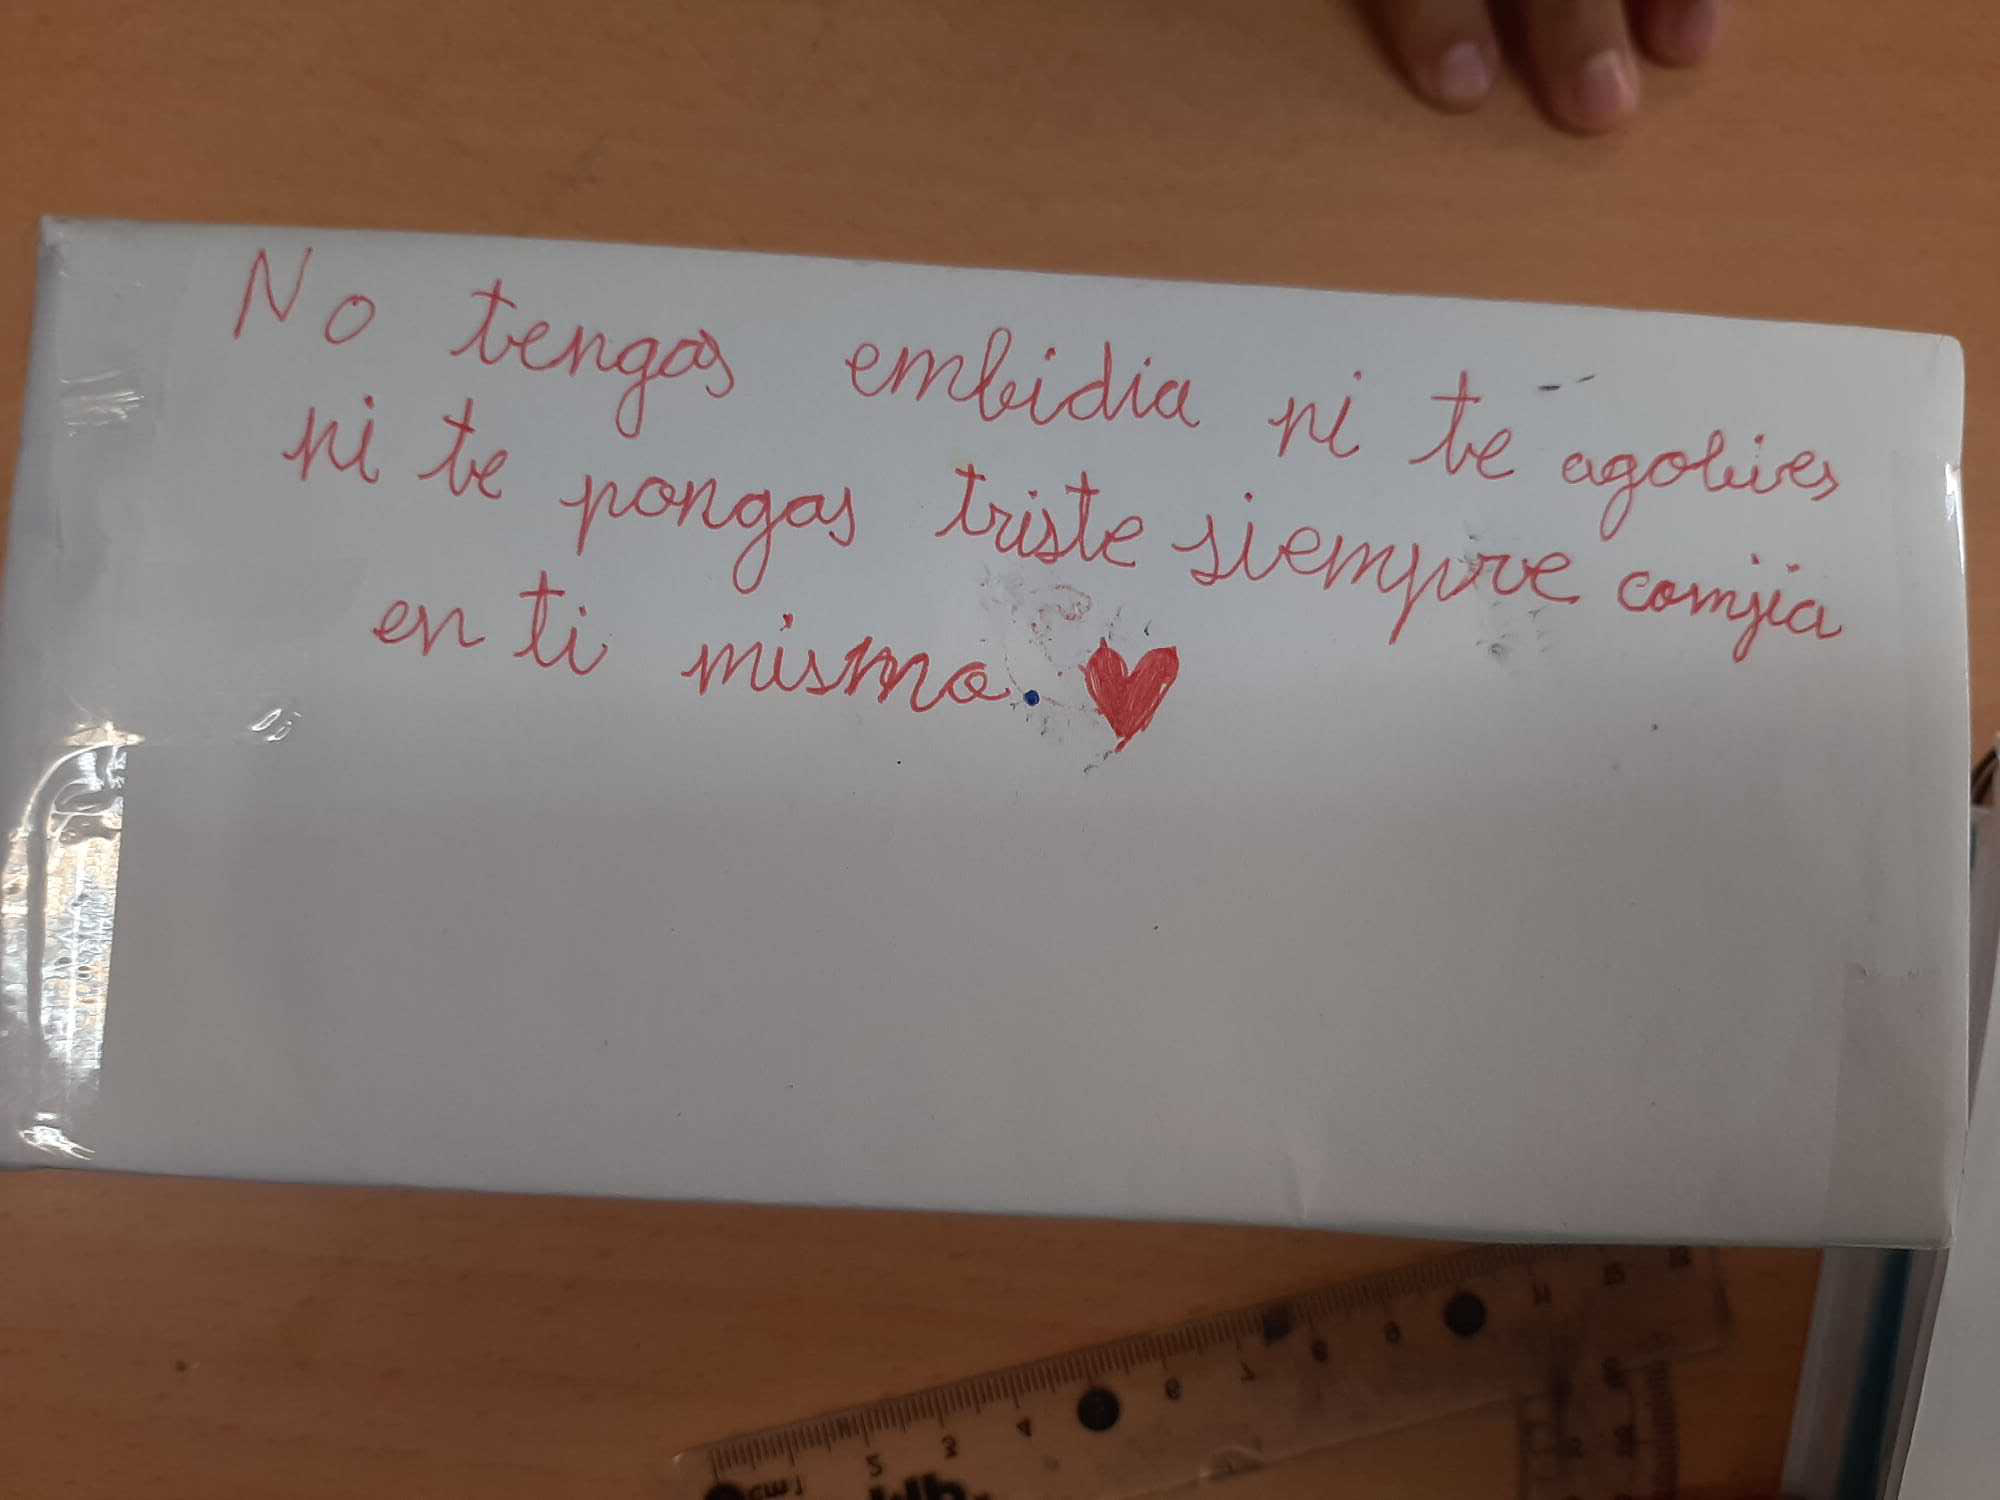 No tengas embidia ni te agobies
ni te pongas triste siempre comfia
en ti mismo.
cm 1 2 3 4 6 7 8 9 11